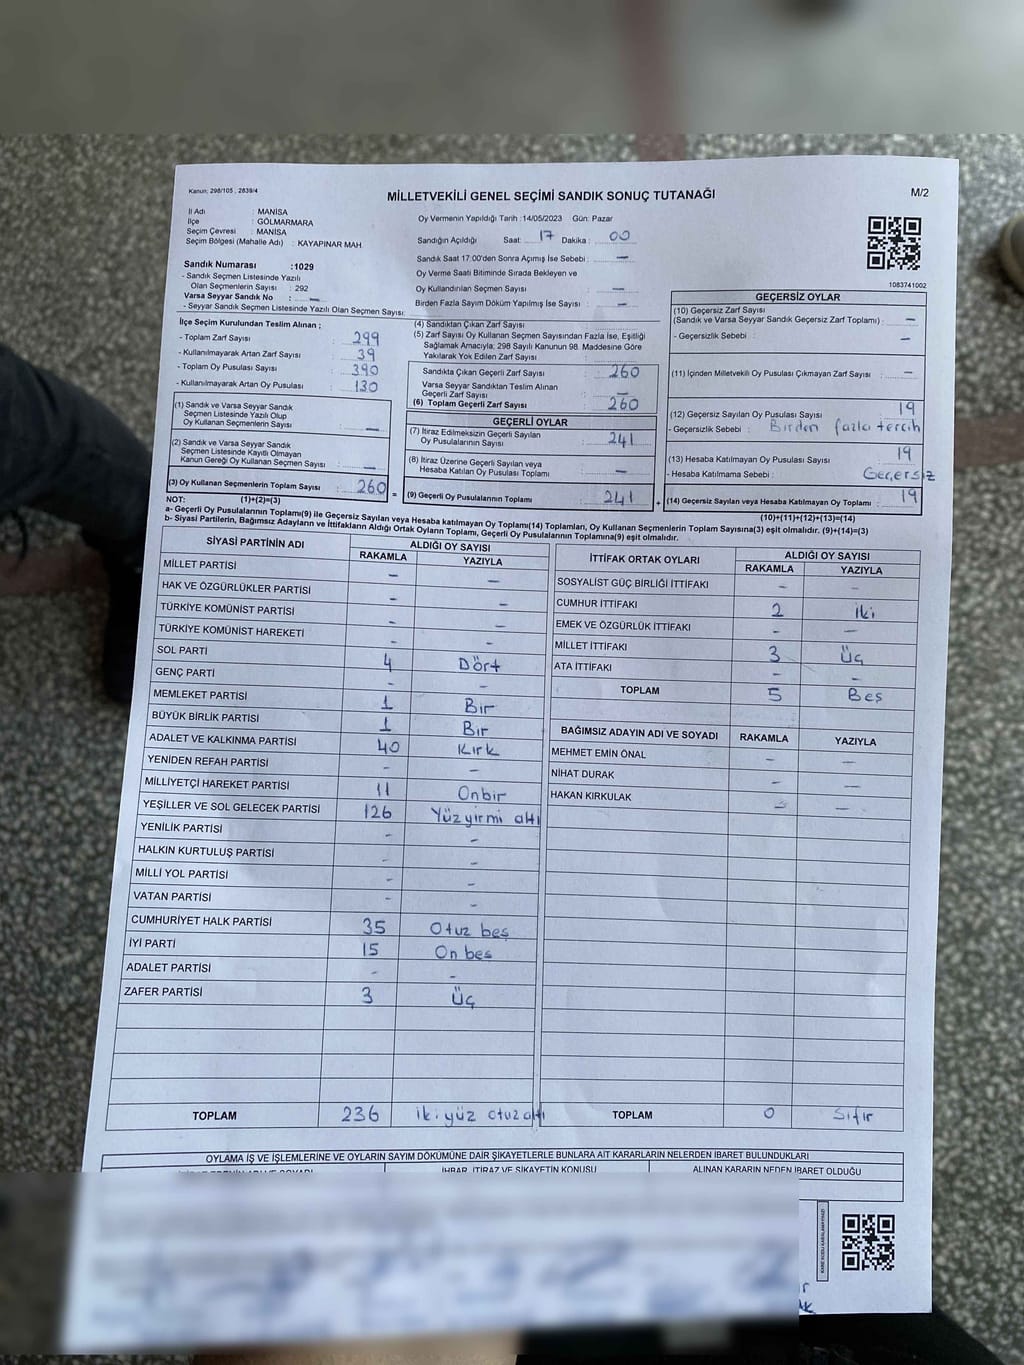 Kanun: 298/105 , 2839/4
MİLLETVEKİLİ GENEL SEÇİMİ SANDIK SONUÇ TUTANAĞI
M/2
İl Adı : MANİSA
İlçe : GÖLMARMARA
Seçim Çevresi : MANİSA
Seçim Bölgesi (Mahalle Adı) : KAYAPINAR MAH.
Sandık Numarası :1029
- Sandık Seçmen Listesinde Yazılı
Olan Seçmenlerin Sayısı : 292
Varsa Seyyar Sandık No : —
- Seyyar Sandık Seçmen Listesinde Yazılı Olan Seçmen Sayısı:
Oy Vermenin Yapıldığı Tarih :14/05/2023 Gün: Pazar
Sandığın Açıldığı Saat: 17 Dakika : 00
Sandık Saat 17:00'den Sonra Açımış İse Sebebi : —
Oy Verme Saati Bitiminde Sırada Bekleyen ve
Oy Kullandırılan Seçmen Sayısı : —
Birden Fazla Sayım Döküm Yapılmış İse Sayısı : —
1083741002
İlçe Seçim Kurulundan Teslim Alınan ;
- Toplam Zarf Sayısı : 299
- Kullanılmayarak Artan Zarf Sayısı : 39
- Toplam Oy Pusulası Sayısı : 390
- Kullanılmayarak Artan Oy Pusulası : 130
(1) Sandık ve Varsa Seyyar Sandık
Seçmen Listesinde Yazılı Olup
Oy Kullanan Seçmenlerin Sayısı : —
(2) Sandık ve Varsa Seyyar Sandık
Seçmen Listesinde Kayıtlı Olmayan
Kanun Gereği Oy Kullanan Seçmen Sayısı : —
(3) Oy Kullanan Seçmenlerin Toplam Sayısı : 260 =
(1)+(2)=(3)
(4) Sandıktan Çıkan Zarf Sayısı :
(5) Zarf Sayısı Oy Kullanan Seçmen Sayısından Fazla İse, Eşitliği
Sağlamak Amacıyla; 298 Sayılı Kanunun 98. Maddesine Göre
Yakılarak Yok Edilen Zarf Sayısı :
Sandıkta Çıkan Geçerli Zarf Sayısı : 260
Varsa Seyyar Sandıktan Teslim Alınan
Geçerli Zarf Sayısı : —
(6) Toplam Geçerli Zarf Sayısı : 260
GEÇERLİ OYLAR
(7) İtiraz Edilmeksizin Geçerli Sayılan
Oy Pusulalarının Sayısı : 241
(8) İtiraz Üzerine Geçerli Sayılan veya
Hesaba Katılan Oy Pusulası Toplamı : —
(9) Geçerli Oy Pusulalarının Toplamı : 241 +
GEÇERSİZ OYLAR
(10) Geçersiz Zarf Sayısı
(Sandık ve Varsa Seyyar Sandık Geçersiz Zarf Toplamı) : —
- Geçersizlik Sebebi : —
(11) İçinden Milletvekili Oy Pusulası Çıkmayan Zarf Sayısı : —
(12) Geçersiz Sayılan Oy Pusulası Sayısı : 19
- Geçersizlik Sebebi : Birden fazla tercih
(13) Hesaba Katılmayan Oy Pusulası Sayısı : 19
- Hesaba Katılmama Sebebi : Geçersiz
(14) Geçersiz Sayılan veya Hesaba Katılmayan Oy Toplamı : 19
(10)+(11)+(12)+(13)=(14)
NOT:
a- Geçerli Oy Pusulalarının Toplamı(9) ile Geçersiz Sayılan veya Hesaba katılmayan Oy Toplamı(14) Toplamları, Oy Kullanan Seçmenlerin Toplam Sayısına(3) eşit olmalıdır. (9)+(14)=(3)
b- Siyasi Partilerin, Bağımsız Adayların ve İttifakların Aldığı Ortak Oyların Toplamı, Geçerli Oy Pusulalarının Toplamına(9) eşit olmalıdır.
SİYASİ PARTİNİN ADI ALDIĞI OY SAYISI
RAKAMLA YAZIYLA
MİLLET PARTİSİ — —
HAK VE ÖZGÜRLÜKLER PARTİSİ — —
TÜRKİYE KOMÜNİST PARTİSİ — —
TÜRKİYE KOMÜNİST HAREKETİ — —
SOL PARTİ 4 Dört
GENÇ PARTİ — —
MEMLEKET PARTİSİ 1 Bir
BÜYÜK BİRLİK PARTİSİ 1 Bir
ADALET VE KALKINMA PARTİSİ 40 Kırk
YENİDEN REFAH PARTİSİ — —
MİLLİYETÇİ HAREKET PARTİSİ 11 Onbir
YEŞİLLER VE SOL GELECEK PARTİSİ 126 Yüzyirmi altı
YENİLİK PARTİSİ — —
HALKIN KURTULUŞ PARTİSİ — —
MİLLİ YOL PARTİSİ — —
VATAN PARTİSİ — —
CUMHURİYET HALK PARTİSİ 35 Otuz beş
İYİ PARTİ 15 On beş
ADALET PARTİSİ — —
ZAFER PARTİSİ 3 Üç
TOPLAM 236 ikiyüz otuzaltı
İTTİFAK ORTAK OYLARI ALDIĞI OY SAYISI
RAKAMLA YAZIYLA
SOSYALİST GÜÇ BİRLİĞİ İTTİFAKI — —
CUMHUR İTTİFAKI 2 İki
EMEK VE ÖZGÜRLÜK İTTİFAKI — —
MİLLET İTTİFAKI 3 Üç
ATA İTTİFAKI — —
TOPLAM 5 Beş
BAĞIMSIZ ADAYIN ADI VE SOYADI RAKAMLA YAZIYLA
MEHMET EMİN ÖNAL — —
NİHAT DURAK — —
HAKAN KIRKULAK —
TOPLAM 0 Sıfır
OYLAMA İŞ VE İŞLEMLERİNE VE OYLARIN SAYIM DÖKÜMÜNE DAİR ŞİKAYETLERLE BUNLARA AİT KARARLARIN NELERDEN İBARET BULUNDUKLARI
İHBAR, İTİRAZ VE ŞİKAYETİN KONUSU ALINAN KARARIN NEDEN İBARET OLDUĞU